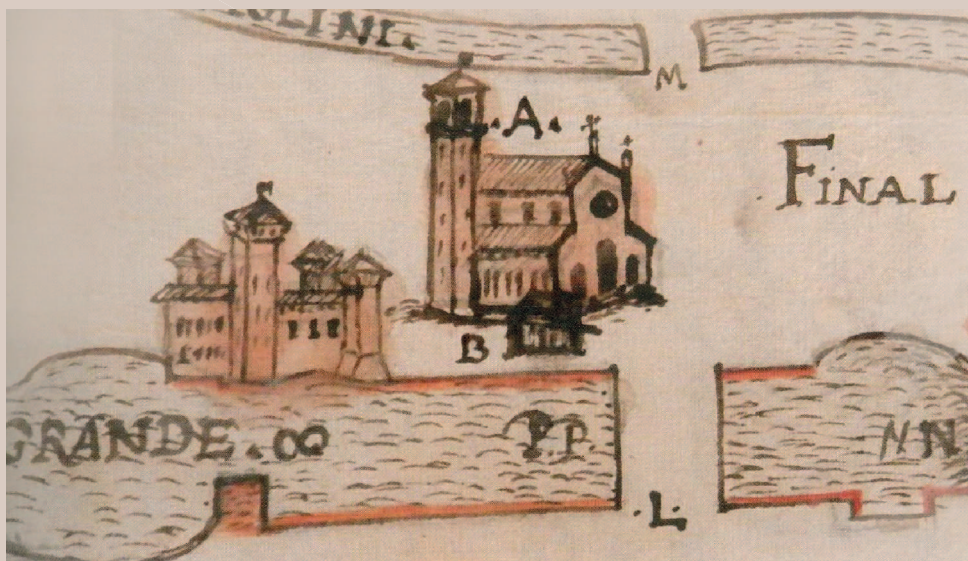 OLINI.
M
.A.
. FINAL
B
GRANDE . OO
P.P.
N N
.L.